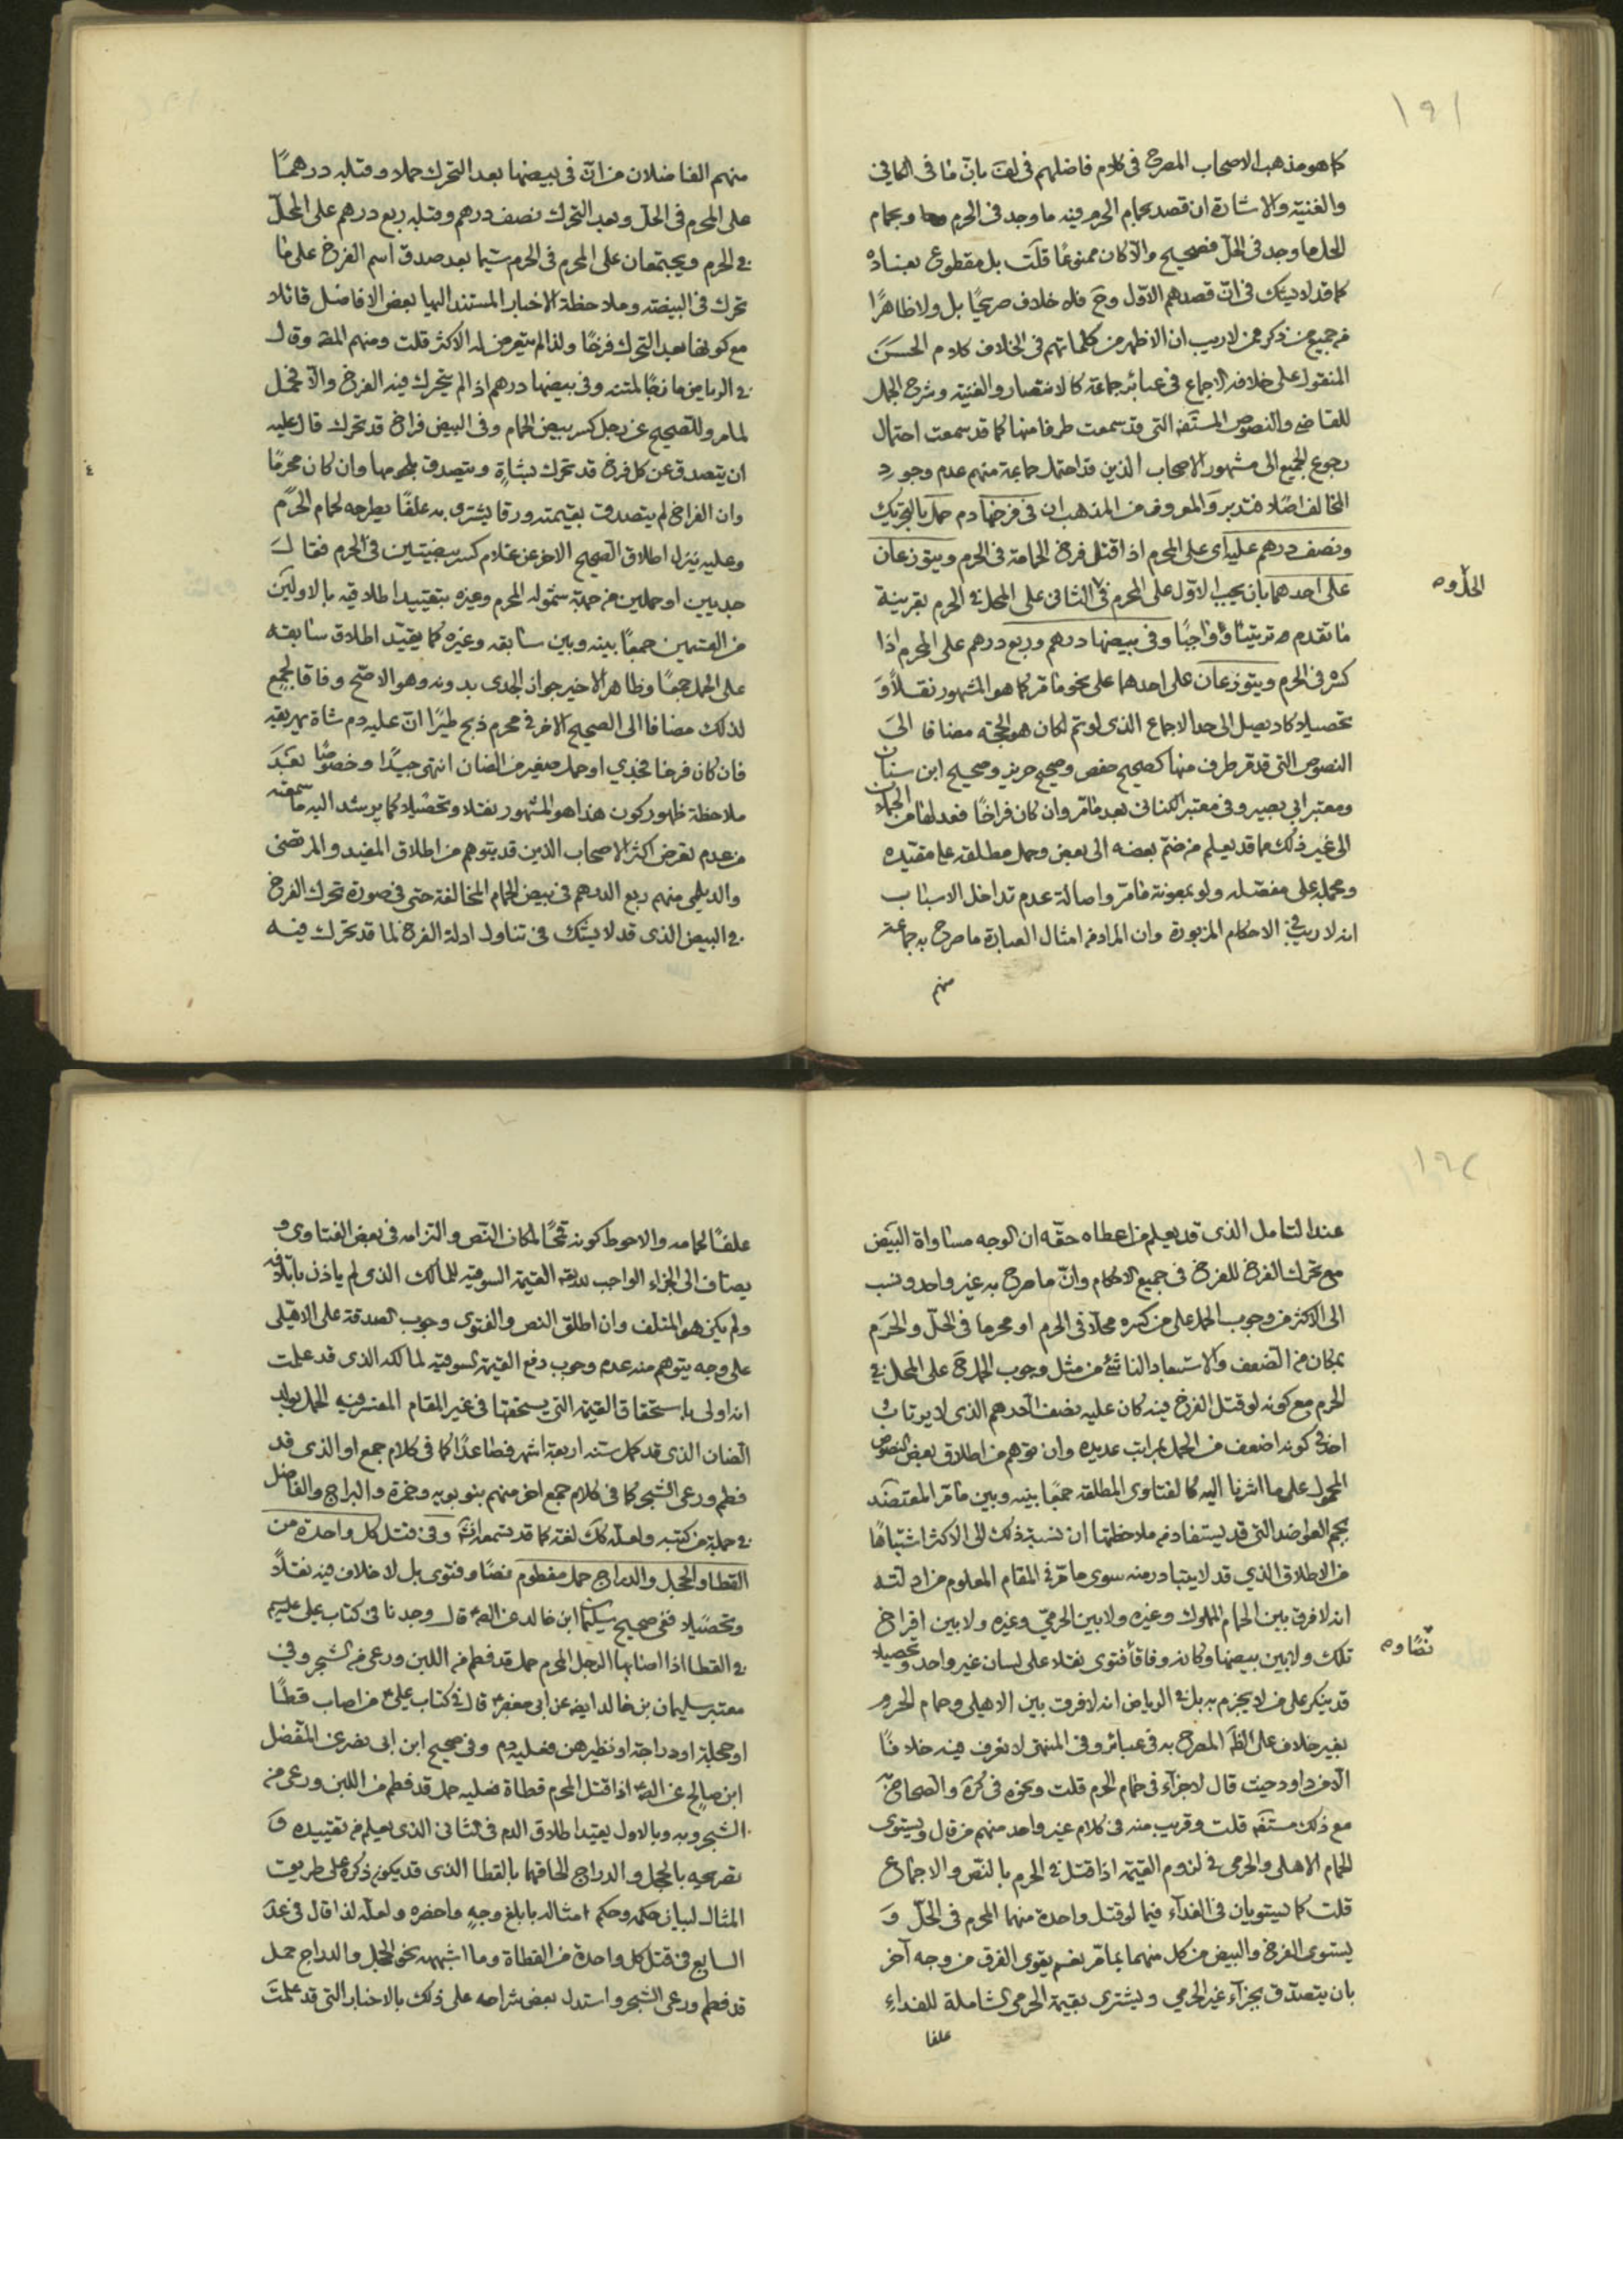 ١٩١
كما هو مذهب الاصحاب المصرح فى كلام فاضلهم فى لف بان ما فى الكافى
والغنية والاشارة ان قصد بحمام الحرم فيه ما وجد فى الحرم وبحمام
الحل ما وجد فى الحل فصحيح والا كان ممنوعا قلت بل مقطوع بفساده
كما قد لا يشك فى ان قصدهم الاول وح فلا خلاف صريحا بل ولا ظاهرا
من جميع من ذكر ممن لا ريب ان الاظهر من كلماتهم فى الخلاف كلام الحسن
المنقول على خلافه الاجماع فى عبائر جماعة كالانتصار والغنية وشرح الجمل
للقاضى والنصوص المستفه التى قد سمعت طرفا منها كما قد سمعت احتمال
رجوع الجميع الى مشهور الاصحاب الذين قد احتمل جماعة منهم عدم وجود
المخالف اصلا فتدبر والمعروف من المذهب ان فى فرخها دم حمل بالتحريك
ونصف درهم عليه اى على المحرم اذا قتل فرخ الحمامة فى الحرم ويتوزعان
الحل و ه
على احدهما بان يجب الاول على المحرم فى الثانى على المحل فى الحرم بقرينة
ما تقدم ه ترتيبا واجبا وفى بيضها درهم وربع درهم على المحرم اذا
كسره فى الحرم ويتوزعان على احدهما على نحو ما مر كما هو المشهور نقلا و
تحصيلا كاد يصل الى حد الاجماع الذى لو تم لكان هو الحجة مضافا الى
النصوص التى قد مر طرف منها كصحيح حفص وصحيح حريز وصحيح ابن سنان
ومعتبر ابى بصير وفى معتبر الكنانى بعد ما مر وان كان فراخا فعدلها من الحملان
الى غير ذلك مما قد يعلم من ضم بعضه الى بعض وحمل مطلقه على مقيده
ومجمله على مفصله ولو بمعونة ما مر واصالة عدم تداخل الاسباب
انه لا ريب فى الاحكام المزبورة وان المراد من امثال العبارة ما صرح به جماعة
منهم
منهم الفاضلان من ان فى بيضها بعد التحرك حملا وقبله درهما
على المحرم فى الحل وبعد التحرك نصف درهم وقبله ربع درهم على المحل
فى الحرم ويجتمعان على المحرم فى الحرم سيما بعد صدق اسم الفرخ على ما
تحرك فى البيضة وملاحظة الاخبار المستند اليها بعض الافاضل قائلا
مع كونها بعد التحرك فرخا ولذا لم يتعرض له الاكثر قلت ومنهم المصه وقال
فى الرياض مازجا لمتنه وفى بيضها درهم اذا لم يتحرك فيه الفرخ والا فحمل
لما مر وللصحيح عن رجل كسر بيض الحمام وفى البيض فراخ قد تحرك قال عليه
ان يتصدق عن كل فرخ قد تحرك بشاة ويتصدق بلحومها وان كان محرما
وان الفراخ لم يتصدق بقيمته ورقا يشترى به علفا يطرحه لحمام الحرم
وعليه ينزل اطلاق الصحيح الاخر عن غلام كسر بيضتين فى الحرم فقال
جديين او حملين من جهة شموله المحرم وغيره بتقييد اطلاقيه بالاولين
من القسمين جمعا بينه وبين سابقه وغيره كما يقيد اطلاق سابقه
على الحمل جمعا وظاهر الاخير جواز الجدى بدونه وهو الاصح وفاقا لجمع
لذلك مضافا الى الصحيح الاخر فى محرم ذبح طيرا ان عليه دم شاة يهريقه
فان كان فرخا فجدي او حمل صغير من الضان انتهى جيدا وخصوصا بعد
ملاحظة ظهور كون هذا هو المشهور نقلا وتحصيلا كما يرشد اليه ما سمعته
من عدم تعرض اكثر الاصحاب الذين قد يتوهم من اطلاق المفيد والمرتضى
والديلمى منهم ربع الدرهم فى بيض الحمام المخالفة حتى فى صورة تحرك الفرخ
فى البيض الذى قد لا يشك فى تناول ادلة الفرخ لما قد تحرك فيه
١٩٢
عند التامل الذى قد يعلم من اعطاه حقه ان الوجه مساواة البيض
مع تحرك الفرخ للفرخ فى جميع الاحكام وان ما صرح به غير واحد ونسب
الى الاكثر من وجوب الحمل على من كسره محلا فى الحرم او محرما فى الحل والحرم
بمكان من الضعف والاستبعاد الناشئ من مثل وجوب الحمل ح على المحل فى
الحرم مع كونه لو قتل الفرخ فيه كان عليه نصف الدرهم الذى لا يرتاب
احد فى كونه اضعف من الحمل بمراتب عديده وان توهم من اطلاق بعض النصوص
المحمول على ما اشرنا اليه كالفتاوى المطلقة جمعا بينه وبين ما مر المعتضد
بجم العواضد التى قد يستفاد من ملاحظتها ان نسبة ذلك الى الاكثر اشتباها
من الاطلاق الذي قد لا يتبادر منه سوى ما مر فى المقام المعلوم من ادلته
انه لا فرق بين الحمام المملوك وغيره ولا بين الحرمي وغيره ولا بين افراخ
نصا و ه
تلك ولا بين بيضها وكانه وفاقا فتوى نقلا على لسان غير واحد وتحصيلا
قد ينكر على من لا يجزم به بل فى الرياض انه لا فرق بين الاهلى وحمام الحرم
بغير خلاف على الظ المصرح به فى عبائر وفى المنتهى لا نعرف فيه خلافا
الا من داود حيث قال لا جزاء فى حمام الحرم قلت ونحوه فى كره والصحاح به
مع ذلك مستفه قلت وقريب منه فى كلام غير واحد منهم من قال ويستوى
الحمام الاهلى والحرمى فى لزوم القيمة اذا قتل فى الحرم بالنص والاجماع
قلت كما يستويان فى الفداء فيما لو قتل واحدة منهما المحرم فى الحل و
يستوى الفرخ والبيض من كل منهما بما مر نعم يقوى الفرق من وجه آخر
بان يتصدق بجزاء غير الحرمي ويشترى بقيمة الحرمى الشاملة للفداء
علفا
علفا لحمامه والاحوط كونه قمحا لمكان النص والتزامه فى بعض الفتاوى و
يضاف الى الجزاء الواجب لديه القيمة السوقيه للمالك الذى لم ياذن باتلافه
ولم يكن هو المتلف وان اطلق النص والفتوى وجوب الصدقة على الاهلى
على وجه يتوهم منه عدم وجوب دفع القيمة السوقيه لمالكه الذى قد علمت
انه اولى باستحقاق القيمة التى يستحقها فى غير المقام المفسر فيه الحمل بولد
الضان الذى قد كمل سنه اربعة اشهر فصاعدا كما فى كلام جمع او الذى قد
فطم ورعى الشجر كما فى كلام جمع اخر منهم بنو بويه وحمزة والبراج والفاضل
فى جملة من كتبه ولعله كك لغة كما قد يسمع وفى قتل كل واحدة من
القطا والحجل والدراج حمل مفطوم نصا وفتوى بل لا خلاف فيه نقلا
وتحصيلا ففى صحيح سليمان ابن خالد عن الصه قال وجدنا فى كتاب على عليه
فى القطا اذا اصابها الرجل المحرم حمل قد فطم من اللبن ورعى من الشجر وفى
معتبر سليمان بن خالد ايضه عن ابى جعفر قال فى كتاب على من اصاب قطا
او حجلة او دراجة او نظيرهن فعليه دم وفى صحيح ابن ابى نصر عن المفضل
ابن صالح عن الصه اذا قتل المحرم قطاة فعليه حمل قد فطم من اللبن ورعى من
الشجر وبه وبالاول يقيد اطلاق الدم فى الثانى الذى يعلم من تقييده و
تصريحه بالحجل والدراج الحاقهما بالقطا الذى قد يكون ذكره على طريق
المثال لبيان حكمه وحكم امثاله بابلغ وجه واخصره ولعله لذا قال فى عد
السابع فى قتل كل واحدة من القطاة وما اشبهه نحو الحجل والدراج حمل
قد فطم ورعى الشجر واستدل بعض شراحه على ذلك بالاخبار التى قد علمت